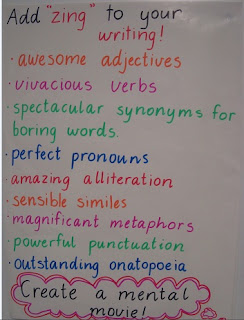 Add "zing" to your
writing!
· awesome adjectives
· vivacious verbs
· spectacular synonyms for
boring words.
· perfect pronouns
· amazing alliteration
· sensible similes
· magnificent metaphors
· powerful punctuation
· outstanding onatopoeia
Create a mental
movie!